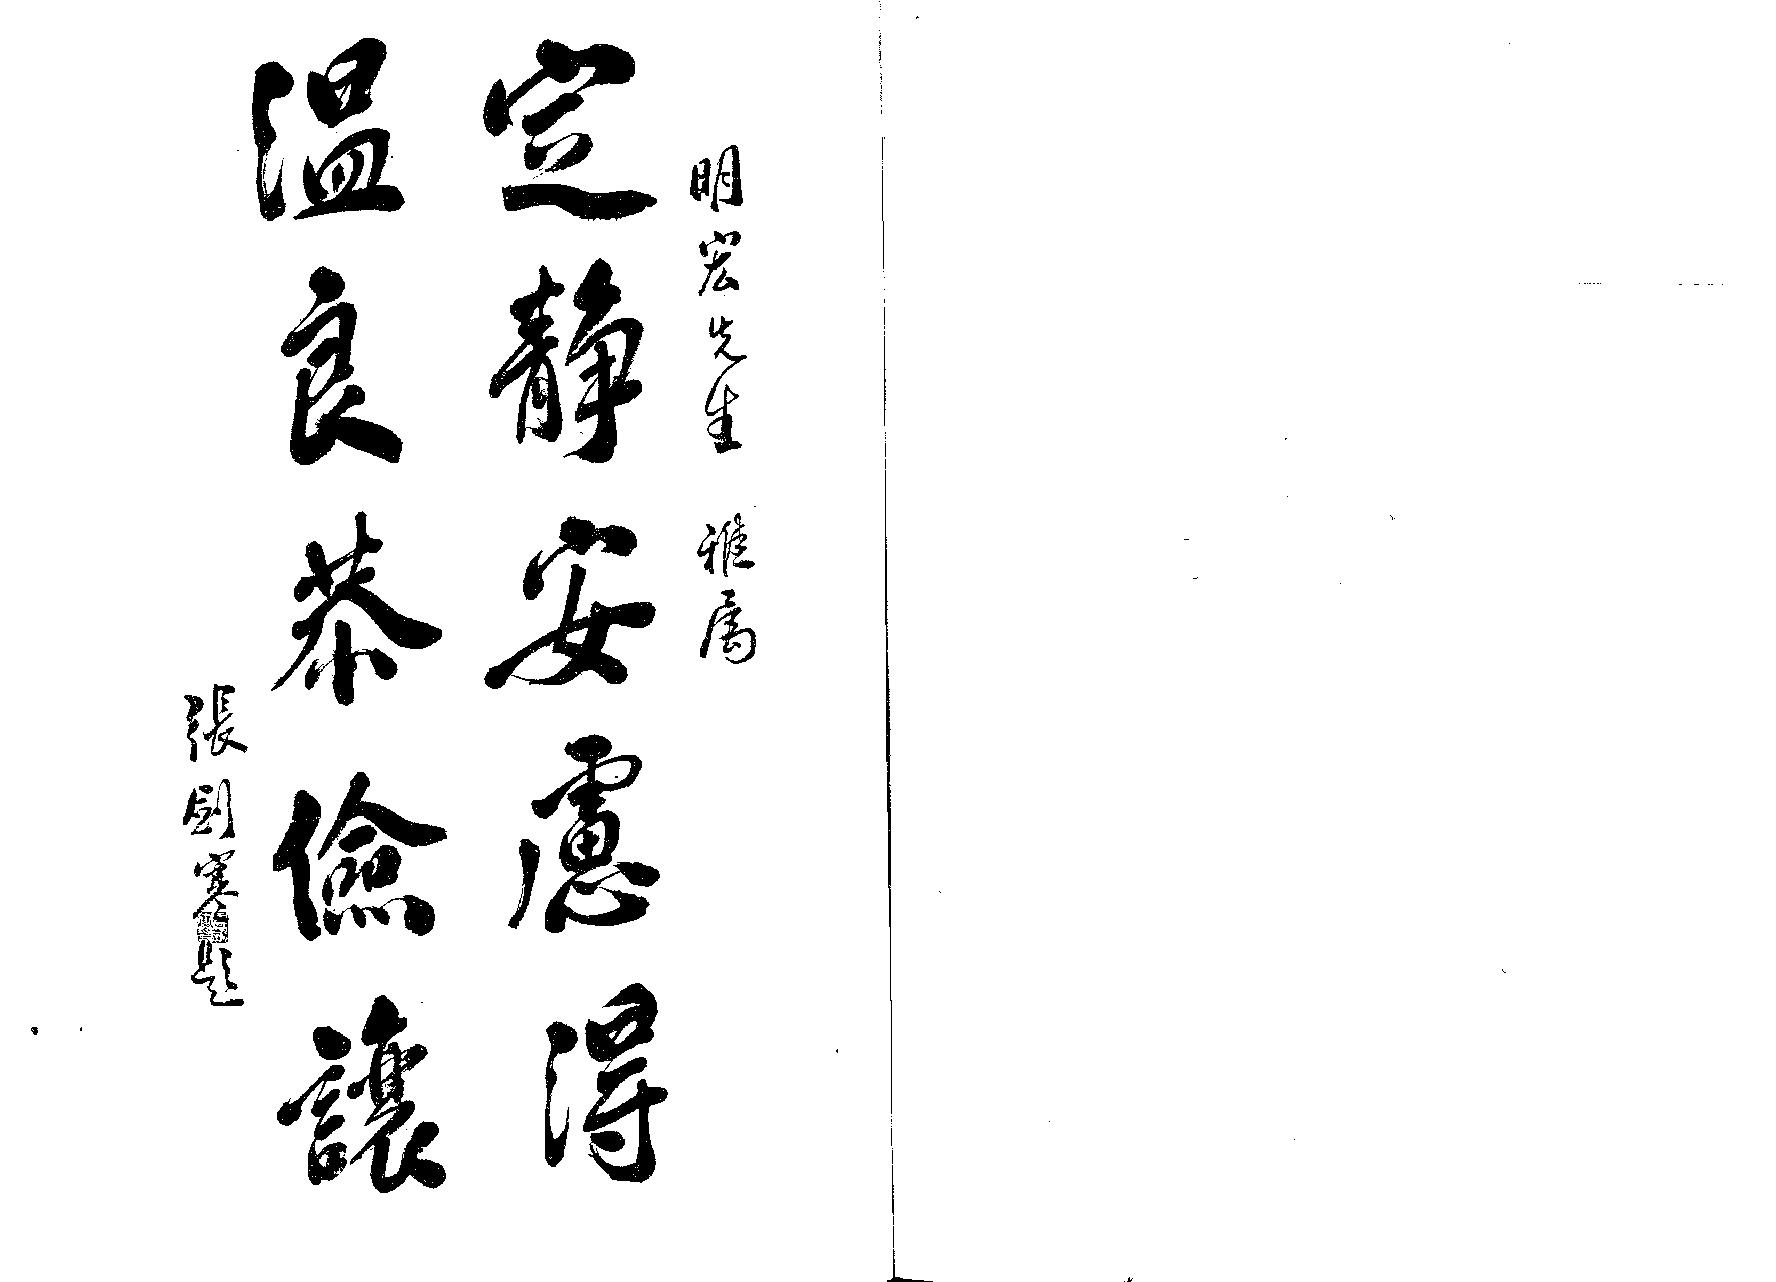 明宏先生 雅属
定靜安慮得
溫良恭儉讓
張劍寒題